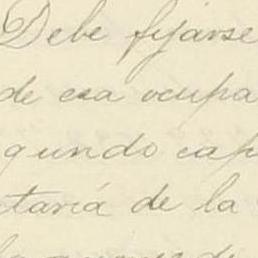 Debe fijarse
de esa ocupa
gundo cap
taria de la